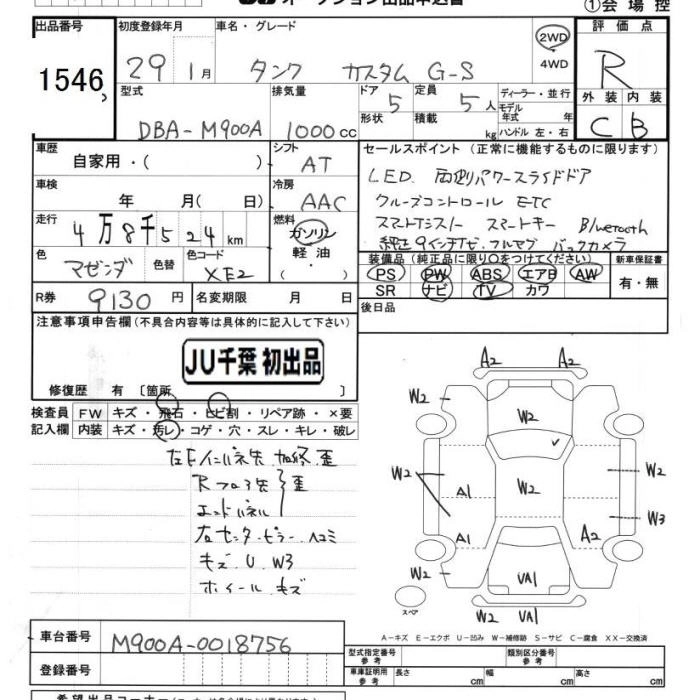 オークション出品申込書
①会場控
出品番号 初度登録年月 車名・グレード 2WD 4WD 評価点
1546 29 1月 タンク カスタム G-S R
型式 排気量 ドア 5 定員 5人 ディーラー・並行 外装 内装
DBA-M900A 1000cc 形状 積載 kg モデル年式 年式 ハンドル 左・右 C B
車歴 自家用・( ) シフト AT セールスポイント (正常に機能するものに限ります)
車検 年 月( 日) 冷房 AAC LED 両側パワースライドドア
クルーズコントロール ETC
走行 4万8千524km 燃料 ガソリン 軽油 ・( ) スマートアシスト スマートキー Bluetooth
純正9インチナビ フルセグ バックカメラ
色 マゼンダ 色替 色コード XE2 装備品 (純正品に限り○をつけてください) 新車保証書
PS PW ABS エアB AW 有・無
SR ナビ TV カワ
R券 9130円 名変期限 月 日 後日品
注意事項申告欄 (不具合内容等は具体的に記入して下さい)
JU千葉 初出品
修復歴 有 〔箇所 〕
検査員 FW キズ・飛石・ヒビ割・リペア跡・×要
記入欄 内装 キズ・汚レ・コゲ・穴・スレ・キレ・破レ
左Fインパネ先 加修 歪
Rフロア先 歪
エンドパネル
右センターピラー ヘコミ
キズ U W3
ホイール キズ
A2 A2
W2 W2
W2
W2 W2 W2
A1 W3
A1 A2
W2 VA1 W2
スペア W2 VA1
A－キズ E－エクボ U－凹み W－補修跡 S－サビ C－腐食 XX－交換済
車台番号 M900A-0018756
型式指定番号 参考 類別区分番号 参考
登録番号 車庫証明用 参考 長さ cm 幅 cm 高さ cm